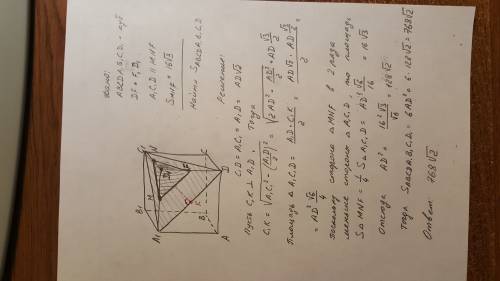 Дано:
ABCDA₁B₁C₁D₁ - куб
DF = F₁D₁
A₁C₁D ∥ MNF
S MNF = 16√3
Найти: S ABCDA₁B₁C₁D₁
Решение:
Пусть C₁K ⊥ A₁D. C₁D = A₁C₁ = A₁D = AD√2
Тогда
C₁K = √(A₁C₁² - (A₁D)²/2) = √(2AD² - AD²/2) = AD √3/2
Площадь △A₁C₁D = A₁D · C₁K / 2 = AD√2 · AD √3/2 / 2 =
= AD² √6/4
Поскольку сторона △MNF в 2 раза
меньше стороны △A₁C₁D, то площадь
S△MNF = 1/4 S△A₁C₁D = AD² √6/16 = 16√3
Отсюда AD² = 16²√3/√6 = 128√2
Тогда S ABCDA₁B₁C₁D₁ = 6AD² = 6·128√2 = 768√2
Ответ: 768√2
B₁
C₁
A₁
D₁
N
M
F
K
B
C
A
D